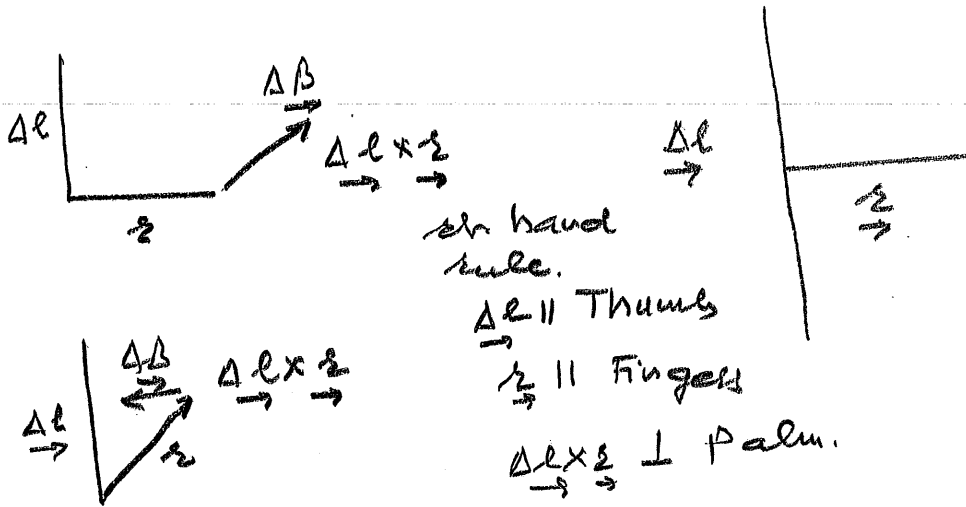 ΔB
Δl
Δl × r
r
rh hand
rule.
Δl || Thumb
r || Fingers
Δl × r ⊥ Palm.
ΔB
Δl × r
Δl
r
Δl
r